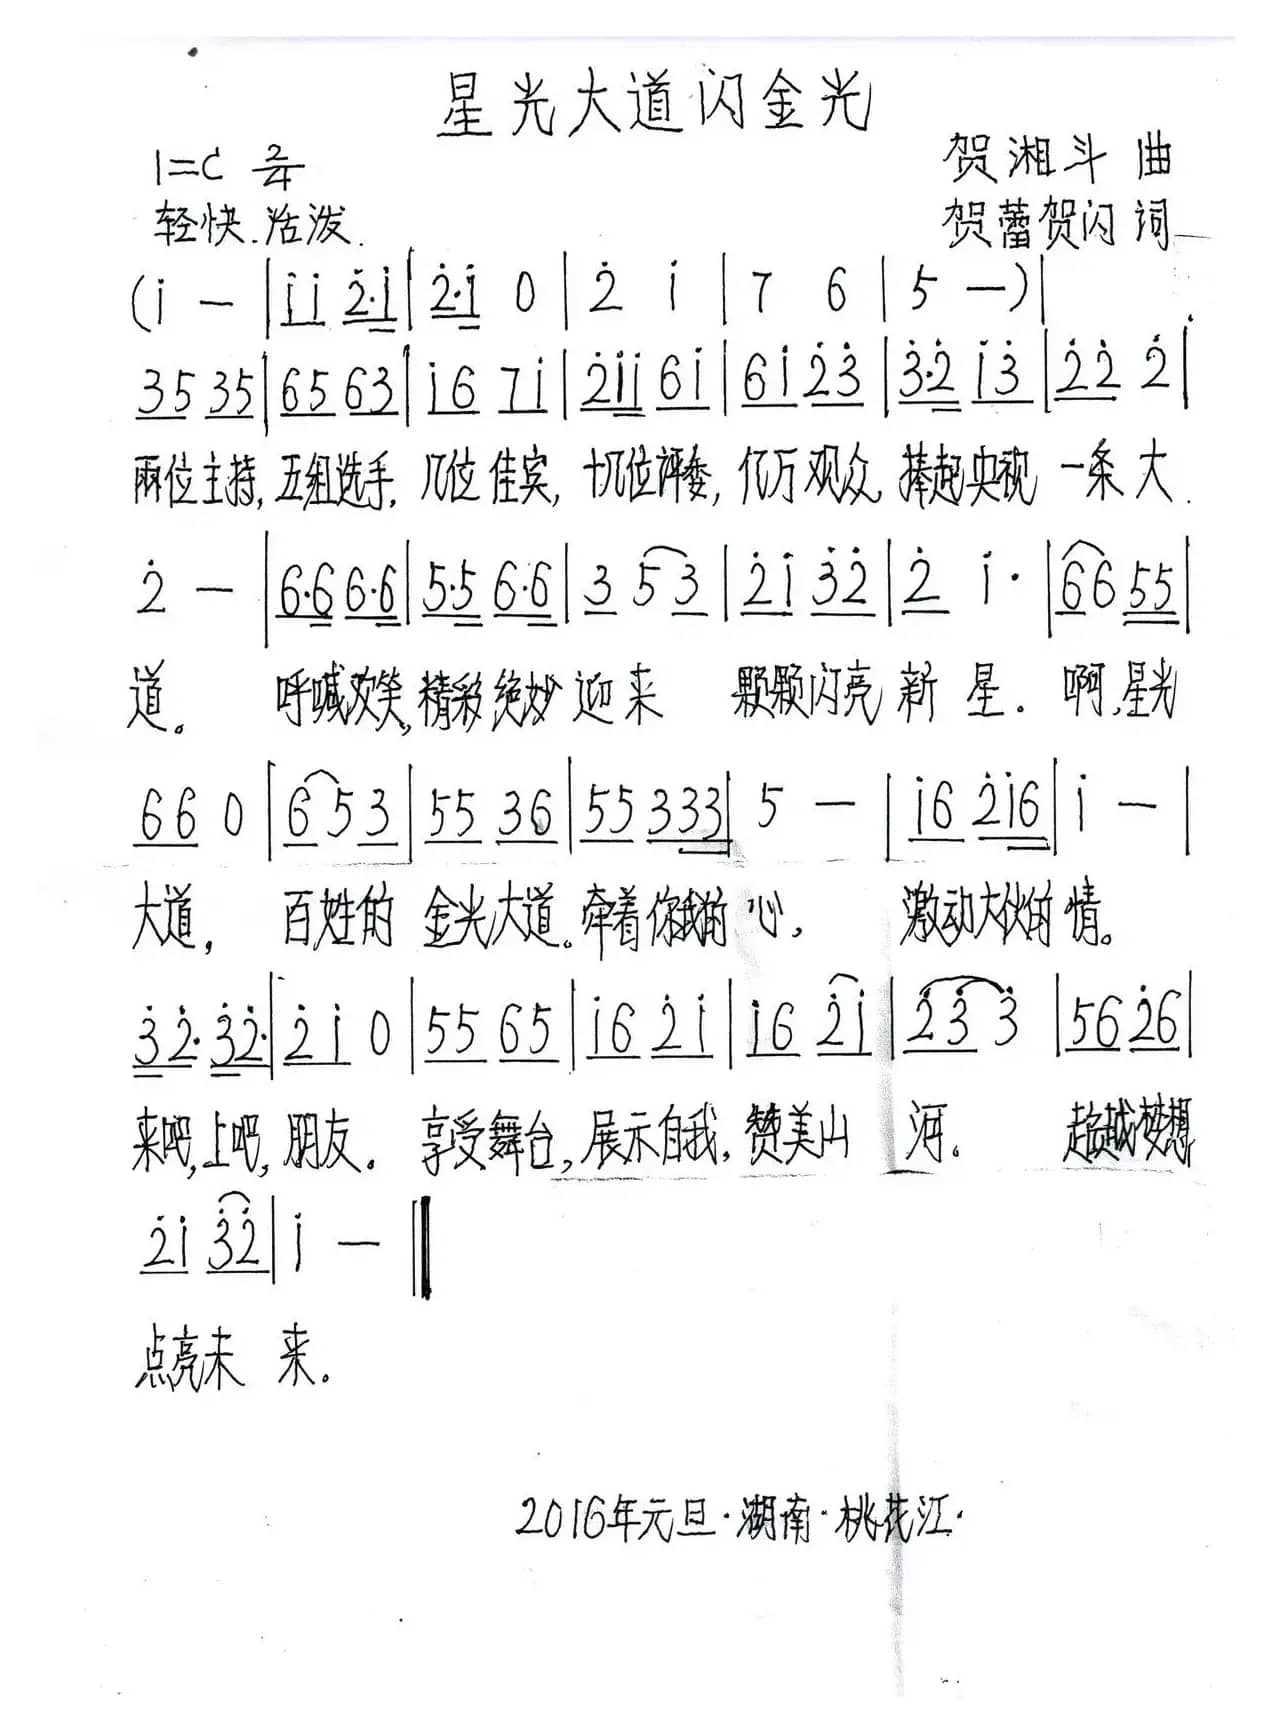 星光大道闪金光
1=C 2/4
贺湘斗 曲
轻快.活泼.
贺蕾贺闪 词
(i̇ — | i̇ i̇ 2̇·i̇ | 2̇·i̇ 0 | 2̇ i̇ | 7 6 | 5 —) |
35 35 | 65 63 | i̇6 7i̇ | 2̇i̇i̇ 6i̇ | 6i̇ 2̇3̇ | 3̇·2̇ i̇3̇ | 2̇2̇ 2̇ |
两位主持,五组选手,几位佳宾,十几位评委,亿万观众,捧起央视一条大
2̇ — | 6·6 6·6 | 5·5 6·6 | 3 5 3 | 2̇i̇ 3̇2̇ | 2̇ i̇· | 66 55 |
道。 呼喊欢笑,精彩绝妙迎来 颗颗闪亮新星. 啊,星光
66 0 | 6 5 3 | 55 36 | 55 333 | 5 — | i̇6 2̇i̇6 | i̇ — |
大道, 百姓的 金光大道。牵着你我的心, 激动大伙的情。
3̇2̇· 3̇2̇· | 2̇ i̇ 0 | 55 65 | i̇6 2̇i̇ | i̇6 2̇i̇ | 2̇3̇ 3̇ | 56 2̇6 |
来吧,上吧,朋友。 享受舞台,展示自我,赞美山 河。 超越梦想
2̇i̇ 3̇2̇ | i̇ — ‖
点亮未 来。
2016年元旦·湖南·桃花江·